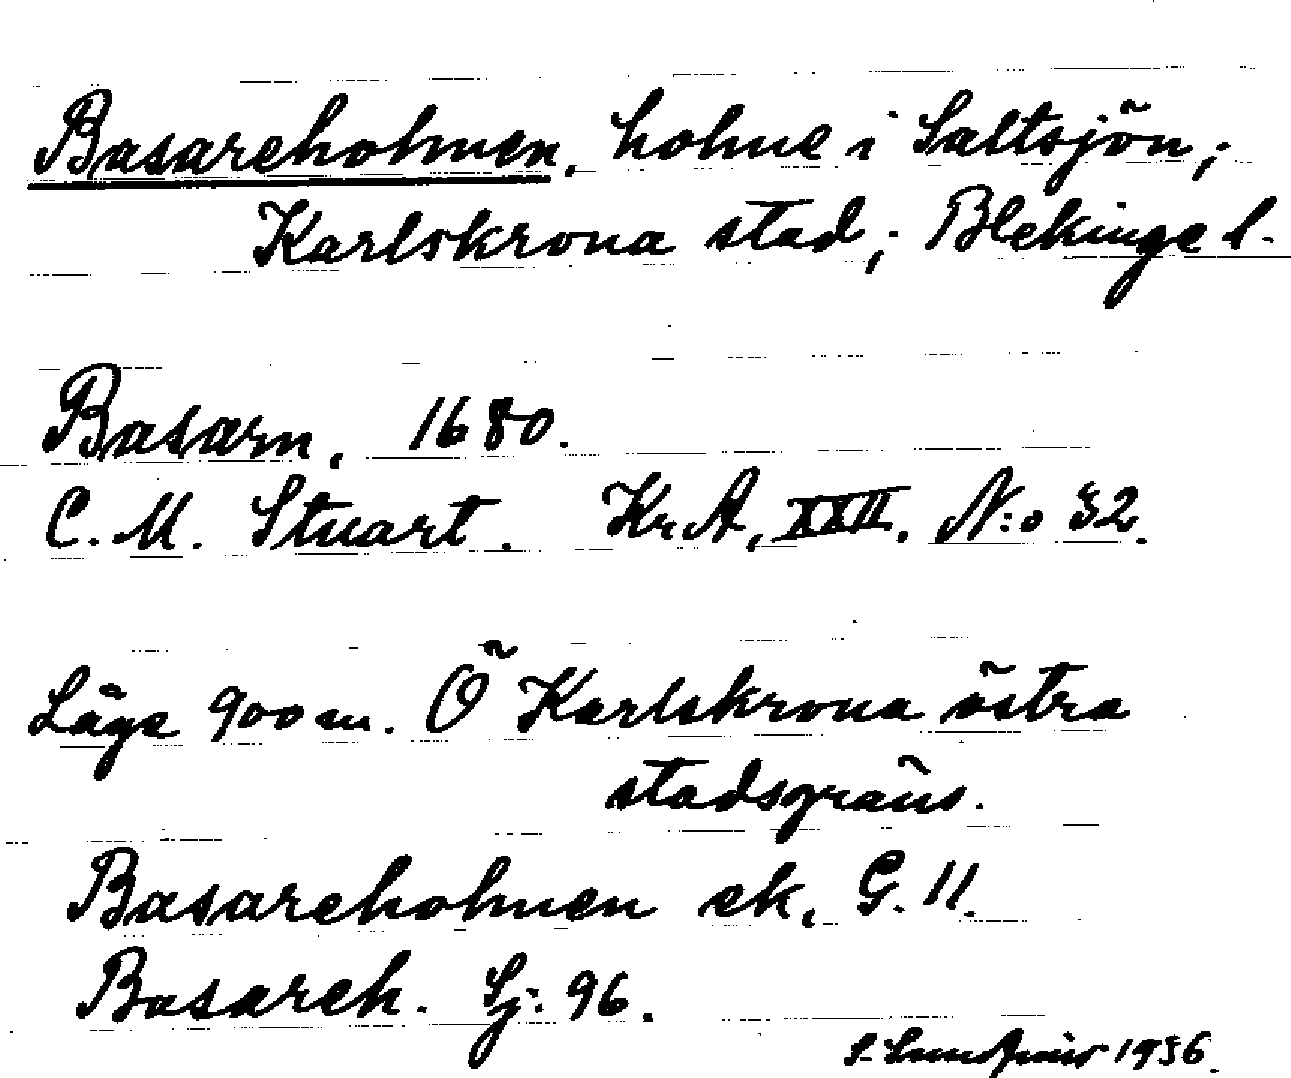 Basareholmen, holme i Saltsjön;
Karlskrona stad; Blekinge l.
Basarn, 1680.
C. M. Stuart. KrA, XXII. N:o 32.
Läge 900 m. Ö Karlskrona östra
stadsgräns.
Basareholmen ek, G. 11.
Basareh. Sj: 96.
1936.